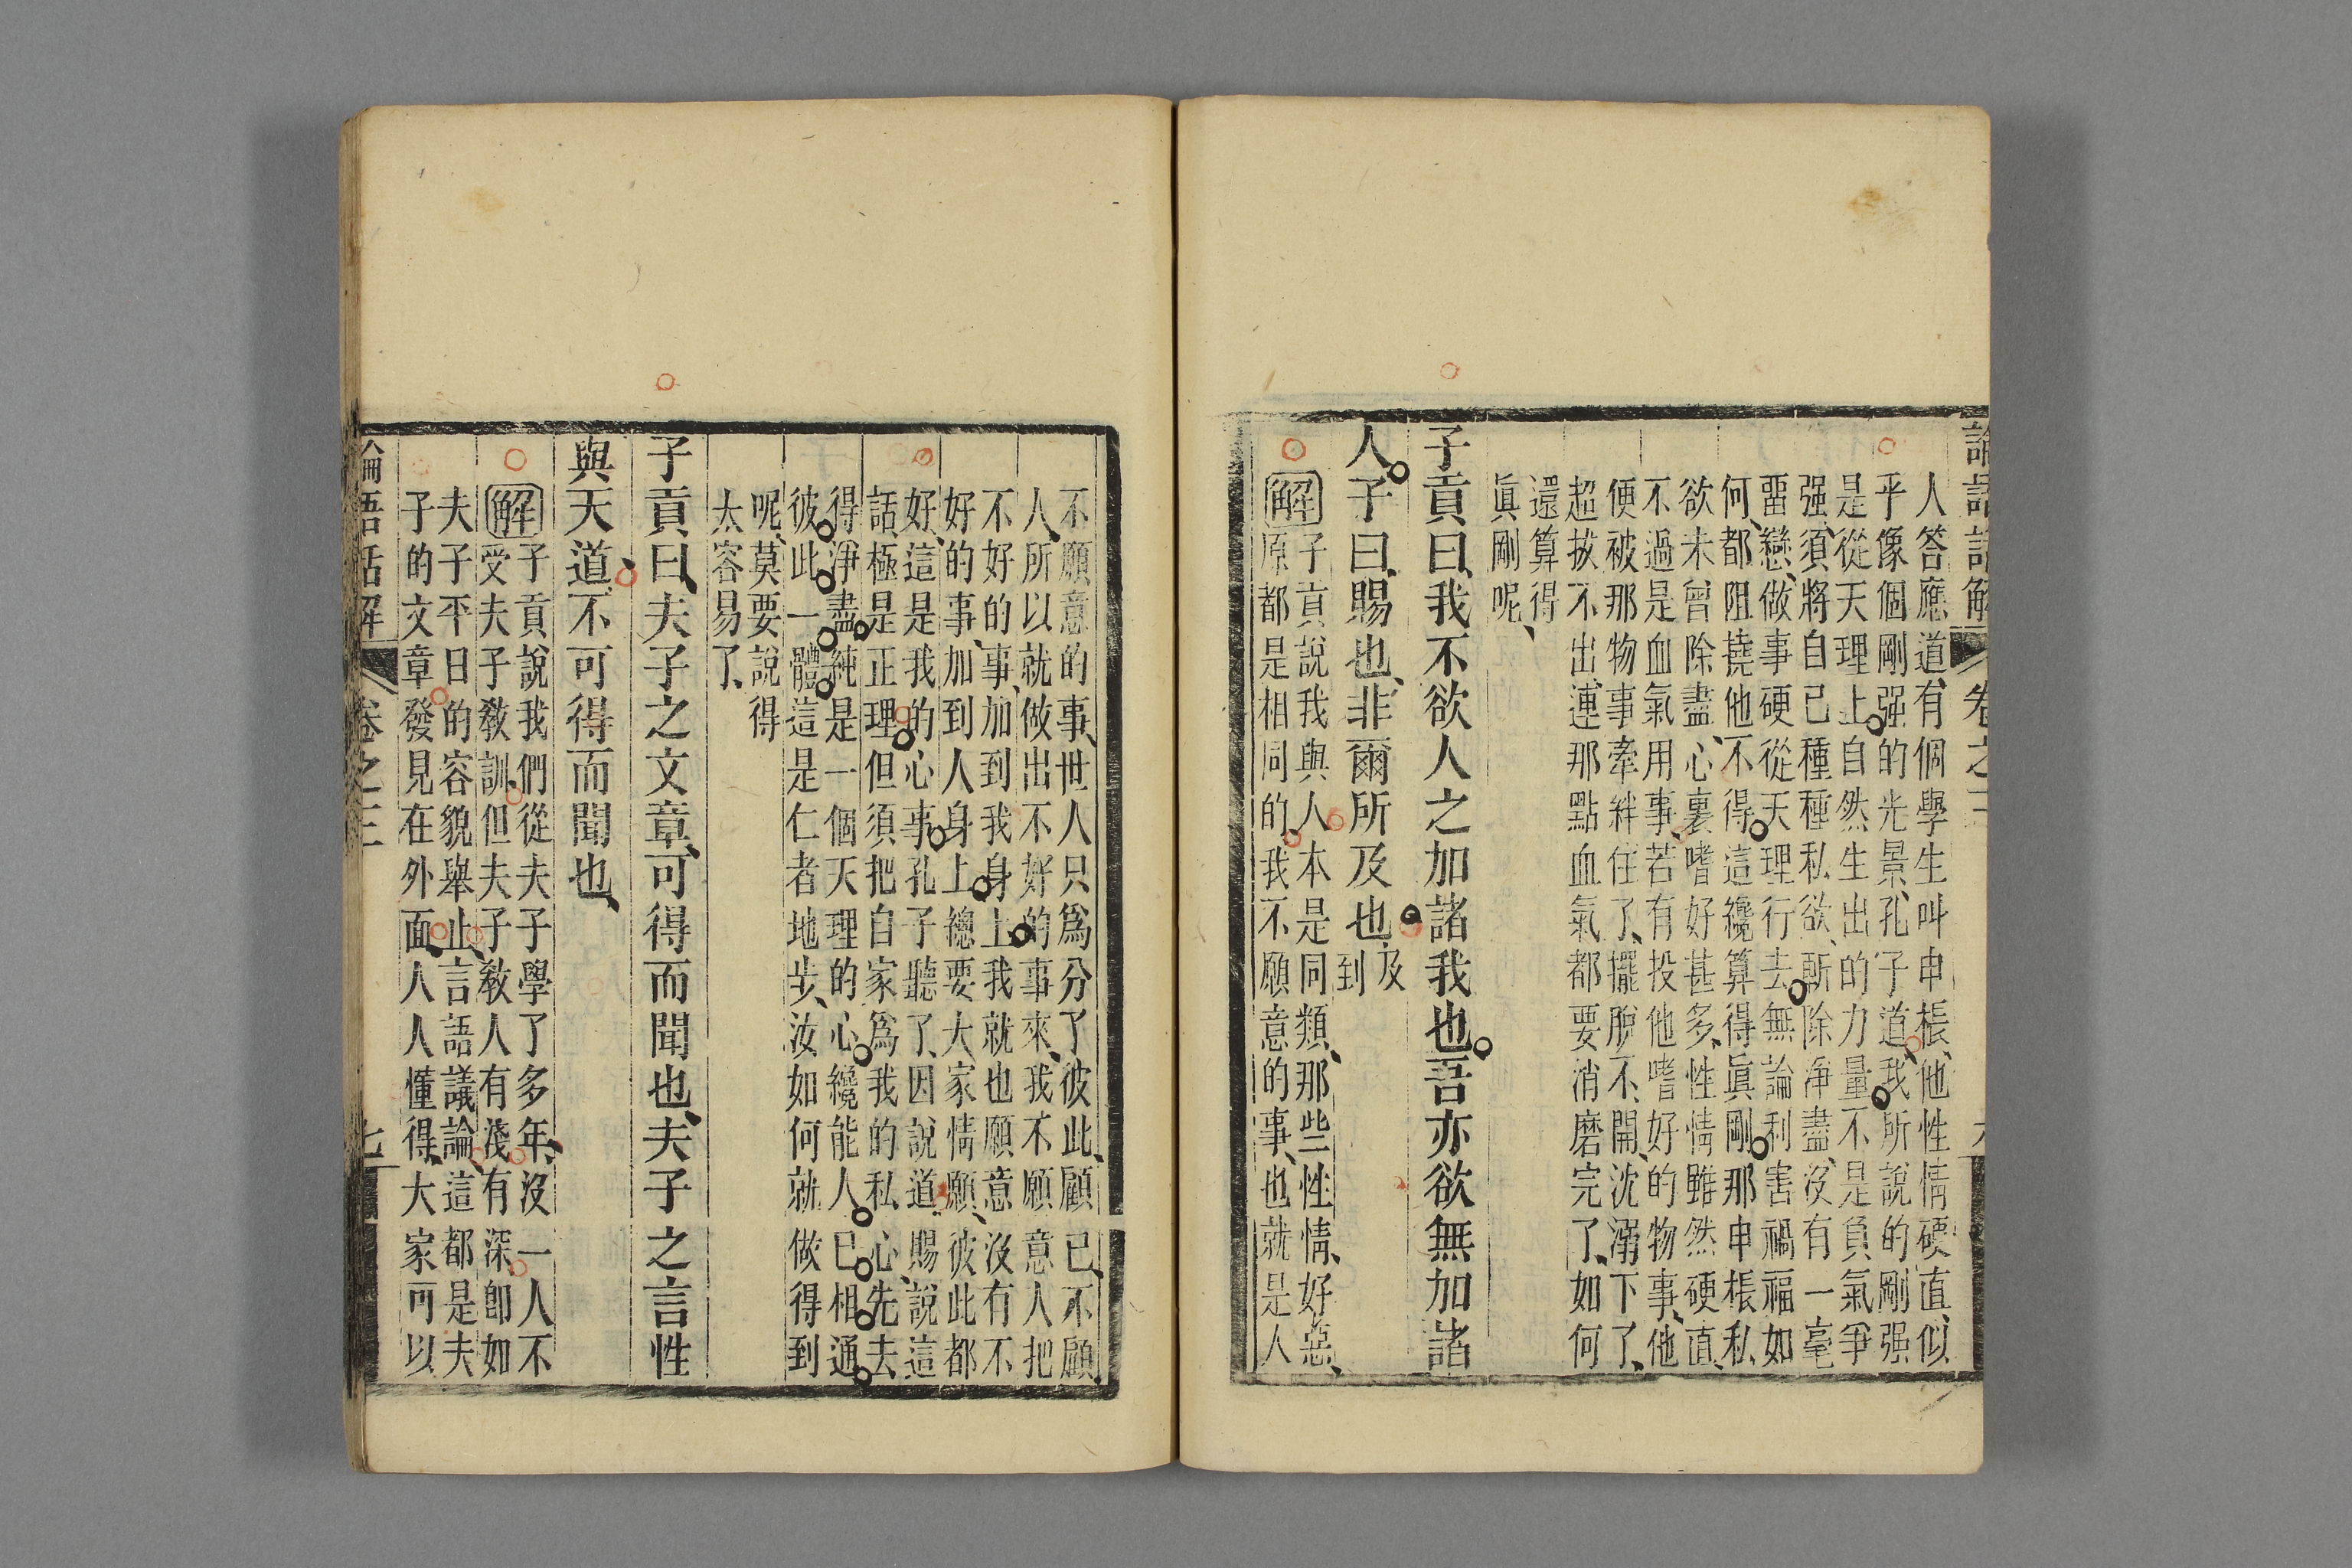 論語話解 卷之三 六
人答應道、有個學生叫申棖、他性情硬直、似
乎像個剛强的光景、孔子道、我所說的剛强
是從天理上自然生出的力量、不是負氣爭
强、須將自已種種私欲、斷除淨盡、沒有一毫
畱戀、做事硬從天理行去、無論利害禍福如
何、都阻撓他不得、這纔算得眞剛、那申棖私
欲未曾除盡、心裏嗜好甚多、性情雖然硬直、
不過是血氣用事、若有投他嗜好的物事、他
便被那物事牽絆住了、擺脫不開、沈溺下了、
超拔不出、連那點血氣都要消磨完了、如何
還算得
眞剛呢、
子貢曰、我不欲人之加諸我也、吾亦欲無加諸
人、子曰、賜也、非爾所及也、及
到
解 子貢說我與人本是同類、那些性情、好惡、
原都是相同的、我不願意的事、也就是人
不願意的事、世人只爲分了彼此、顧已、不顧
人、所以就做出不好的事來、我不願意人把
不好的事、加到我身上、我就也願意沒有不
好的事、加到人身上、總要大家情願、彼此都
好、這是我的心事、孔子聽了、因說道、賜說這
話極是正理、但須把自家爲我的私心、先去
得淨盡、純是一個天理的心、纔能人已相通、
彼此一體、這是仁者地步、汝如何就做得到
呢、莫要說得
太容易了、
子貢曰、夫子之文章、可得而聞也、夫子之言性
與天道、不可得而聞也、
解 子貢說我們從夫子學了多年、沒一人不
受夫子敎訓、但夫子敎人有淺有深、卽如
夫子平日的容貌舉止、言語議論、這都是夫
子的文章發見在外面、人人懂得、大家可以
論語話解 卷之三 七